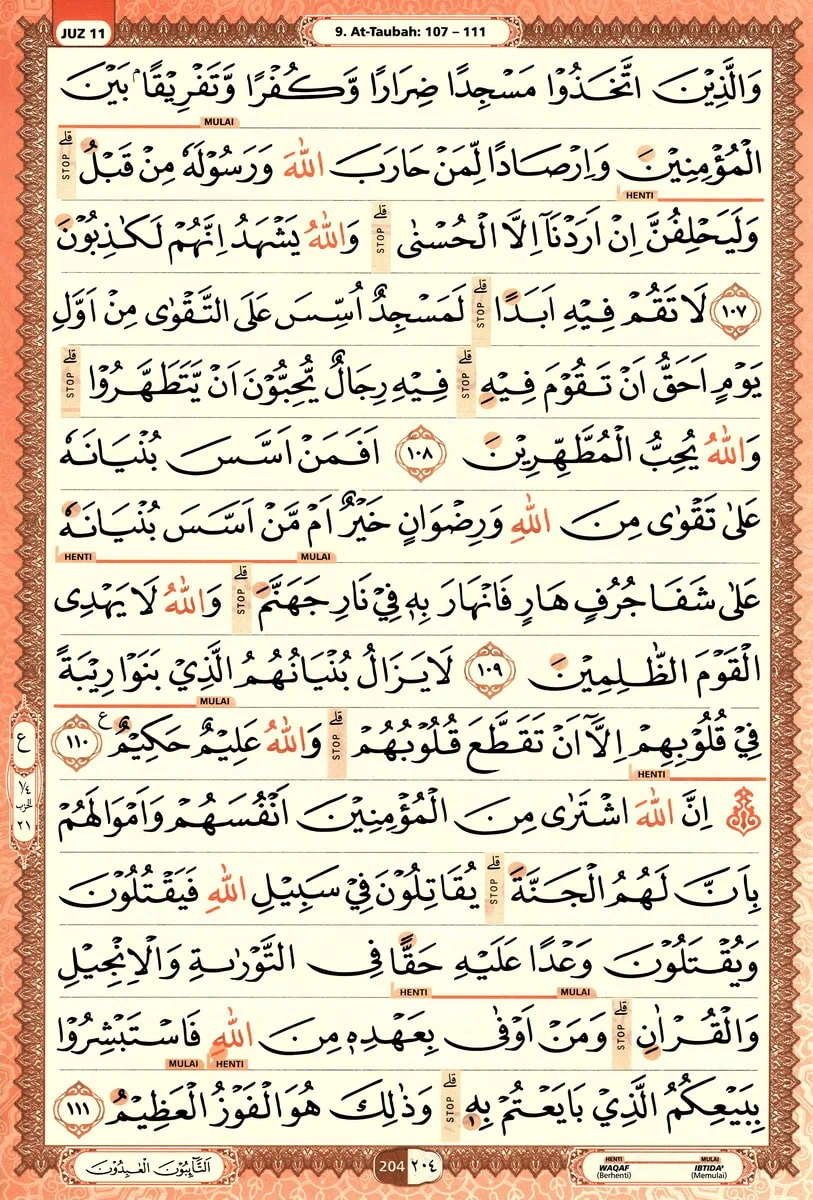 JUZ 11
9. At-Taubah: 107 – 111
وَالَّذِيْنَ اتَّخَذُوْا مَسْجِدًا ضِرَارًا وَّكُفْرًا وَّتَفْرِيْقًاۢ بَيْنَ
MULAI
الْمُؤْمِنِيْنَ وَاِرْصَادًا لِّمَنْ حَارَبَ اللّٰهَ وَرَسُوْلَهٗ مِنْ قَبْلُ ۗ STOP
HENTI
وَلَيَحْلِفُنَّ اِنْ اَرَدْنَآ اِلَّا الْحُسْنٰى ۗ STOP وَاللّٰهُ يَشْهَدُ اِنَّهُمْ لَكٰذِبُوْنَ
١٠٧ لَا تَقُمْ فِيْهِ اَبَدًا ۗ STOP لَمَسْجِدٌ اُسِّسَ عَلَى التَّقْوٰى مِنْ اَوَّلِ
يَوْمٍ اَحَقُّ اَنْ تَقُوْمَ فِيْهِ ۗ STOP فِيْهِ رِجَالٌ يُّحِبُّوْنَ اَنْ يَّتَطَهَّرُوْا ۗ STOP
وَاللّٰهُ يُحِبُّ الْمُطَّهِّرِيْنَ ١٠٨ اَفَمَنْ اَسَّسَ بُنْيَانَهٗ
عَلٰى تَقْوٰى مِنَ اللّٰهِ وَرِضْوَانٍ خَيْرٌ اَمْ مَّنْ اَسَّسَ بُنْيَانَهٗ
HENTI MULAI
عَلٰى شَفَا جُرُفٍ هَارٍ فَانْهَارَ بِهٖ فِيْ نَارِ جَهَنَّمَ ۗ STOP وَاللّٰهُ لَا يَهْدِى
الْقَوْمَ الظّٰلِمِيْنَ ١٠٩ لَا يَزَالُ بُنْيَانُهُمُ الَّذِيْ بَنَوْا رِيْبَةً
MULAI
فِيْ قُلُوْبِهِمْ اِلَّآ اَنْ تَقَطَّعَ قُلُوْبُهُمْ ۗ STOP وَاللّٰهُ عَلِيْمٌ حَكِيْمٌ ࣖ ١١٠
HENTI
ع
١/٤
الحزب
٢١
اِنَّ اللّٰهَ اشْتَرٰى مِنَ الْمُؤْمِنِيْنَ اَنْفُسَهُمْ وَاَمْوَالَهُمْ
بِاَنَّ لَهُمُ الْجَنَّةَ ۗ STOP يُقَاتِلُوْنَ فِيْ سَبِيْلِ اللّٰهِ فَيَقْتُلُوْنَ
وَيُقْتَلُوْنَ وَعْدًا عَلَيْهِ حَقًّا فِى التَّوْرٰىةِ وَالْاِنْجِيْلِ
HENTI MULAI
وَالْقُرْاٰنِ ۗ STOP وَمَنْ اَوْفٰى بِعَهْدِهٖ مِنَ اللّٰهِ فَاسْتَبْشِرُوْا
MULAI HENTI
بِبَيْعِكُمُ الَّذِيْ بَايَعْتُمْ بِهٖ ۗ STOP وَذٰلِكَ هُوَ الْفَوْزُ الْعَظِيْمُ ١١١
اَلتَّاۤىِٕبُوْنَ الْعٰبِدُوْنَ
204 ٢٠٤
HENTI MULAI
WAQAF IBTIDA'
(Berhenti) (Memulai)